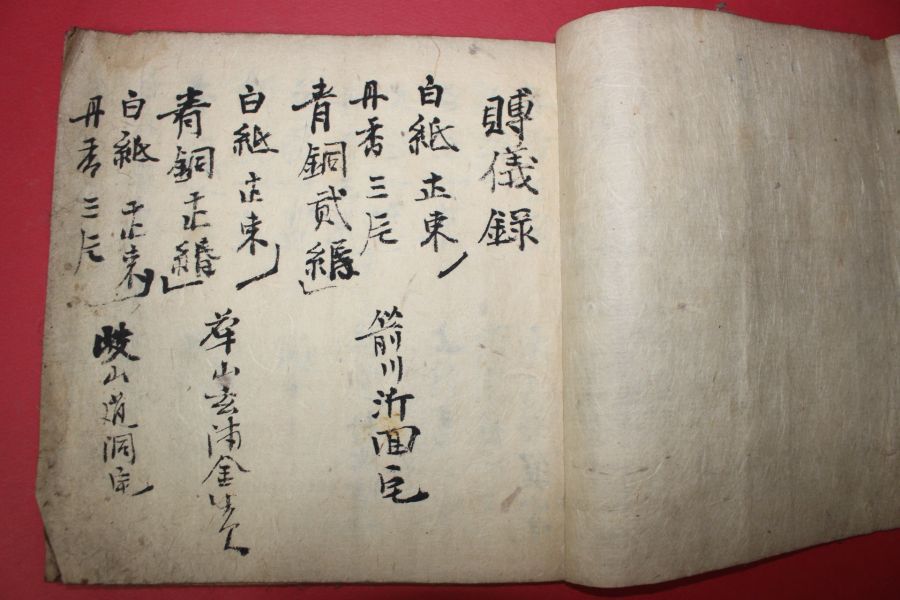 賻儀錄
白紙 壱束
丹香 三片
箭川浙洄宅
青銅貳緡
白紙 壱束
青銅 壱緡
華山玄浦金
白紙 壱束
丹香 三片
岐山道洞宅